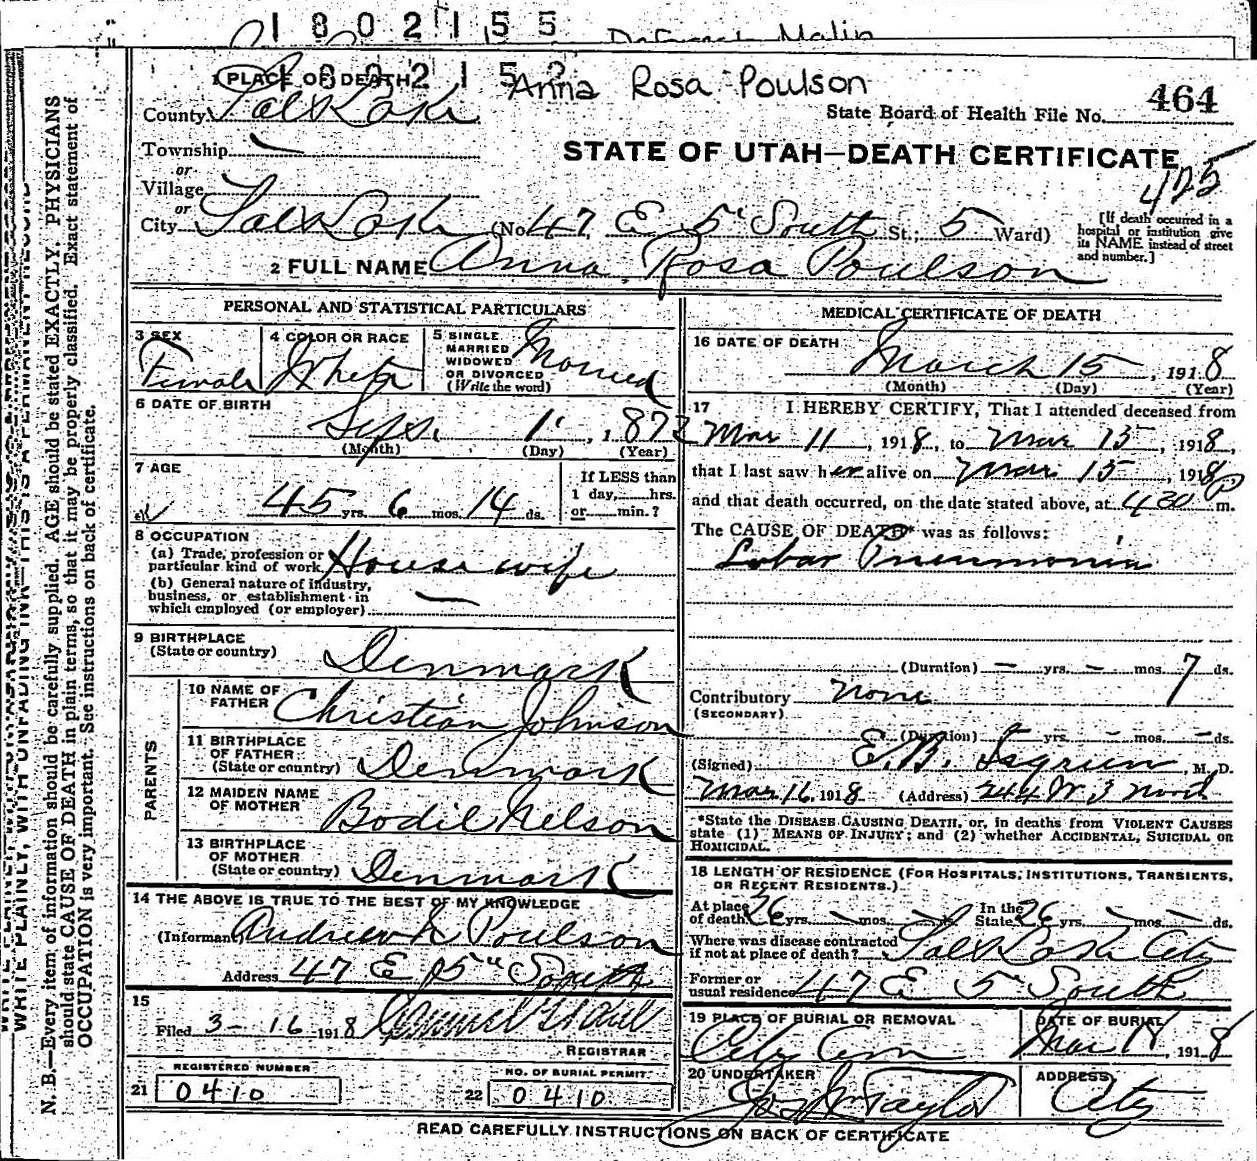 1802155
1802152
Anna Rosa Poulson
1 PLACE OF DEATH
County Salt Lake
State Board of Health File No. 464
Township
or
Village
or
STATE OF UTAH—DEATH CERTIFICATE
425
City Salt Lake (No. 47 E 5" South St.; 5 Ward)
[If death occurred in a hospital or institution give its NAME instead of street and number.]
2 FULL NAME Anna Rosa Poulson
PERSONAL AND STATISTICAL PARTICULARS
3 SEX Female
4 COLOR OR RACE White
5 SINGLE MARRIED WIDOWED OR DIVORCED (Write the word) Married
6 DATE OF BIRTH
Sept. 1, 1872
(Month) (Day) (Year)
7 AGE
45 yrs. 6 mos. 14 ds.
If LESS than 1 day, hrs. or min.?
8 OCCUPATION
(a) Trade, profession or particular kind of work House wife
(b) General nature of industry, business, or establishment in which employed (or employer)
9 BIRTHPLACE
(State or country) Denmark
PARENTS
10 NAME OF FATHER Christian Johnson
11 BIRTHPLACE OF FATHER (State or country) Denmark
12 MAIDEN NAME OF MOTHER Bodil Nelson
13 BIRTHPLACE OF MOTHER (State or country) Denmark
14 THE ABOVE IS TRUE TO THE BEST OF MY KNOWLEDGE
(Informant) Andrew N Poulson
Address 47 E 5" South
15
Filed 3-16 1918
REGISTRAR
REGISTERED NUMBER
21 0410
NO. OF BURIAL PERMIT
22 0410
MEDICAL CERTIFICATE OF DEATH
16 DATE OF DEATH
March 15, 1918
(Month) (Day) (Year)
17 I HEREBY CERTIFY, That I attended deceased from
Mar 11, 1918, to Mar 15, 1918,
that I last saw her alive on Mar 15, 1918,
and that death occurred, on the date stated above, at 430 P m.
The CAUSE OF DEATH* was as follows:
Lobar Pneumonia
(Duration) — yrs. — mos. 7 ds.
Contributory none
(SECONDARY)
(Duration) — yrs. — mos. — ds.
(Signed) E. B. Isgreen, M. D.
Mar 16, 1918 (Address) 244 W 3 North
*State the DISEASE CAUSING DEATH, or, in deaths from VIOLENT CAUSES
state (1) MEANS OF INJURY; and (2) whether ACCIDENTAL, SUICIDAL OR
HOMICIDAL.
18 LENGTH OF RESIDENCE (FOR HOSPITALS, INSTITUTIONS, TRANSIENTS,
OR RECENT RESIDENTS.)
At place of death 26 yrs. — mos. — ds. In the State 26 yrs. — mos. — ds.
Where was disease contracted if not at place of death? Salt Lake City
Former or usual residence 47 E 5" South
19 PLACE OF BURIAL OR REMOVAL
City Cem
DATE OF BURIAL
Mar 18, 1918
20 UNDERTAKER
Jos Wm Taylor
ADDRESS
City
READ CAREFULLY INSTRUCTIONS ON BACK OF CERTIFICATE
WRITE PLAINLY, WITH UNFADING INK—THIS IS A PERMANENT RECORD
N. B.—Every item of information should be carefully supplied. AGE should be stated EXACTLY. PHYSICIANS
should state CAUSE OF DEATH in plain terms, so that it may be properly classified. Exact statement of
OCCUPATION is very important. See instructions on back of certificate.